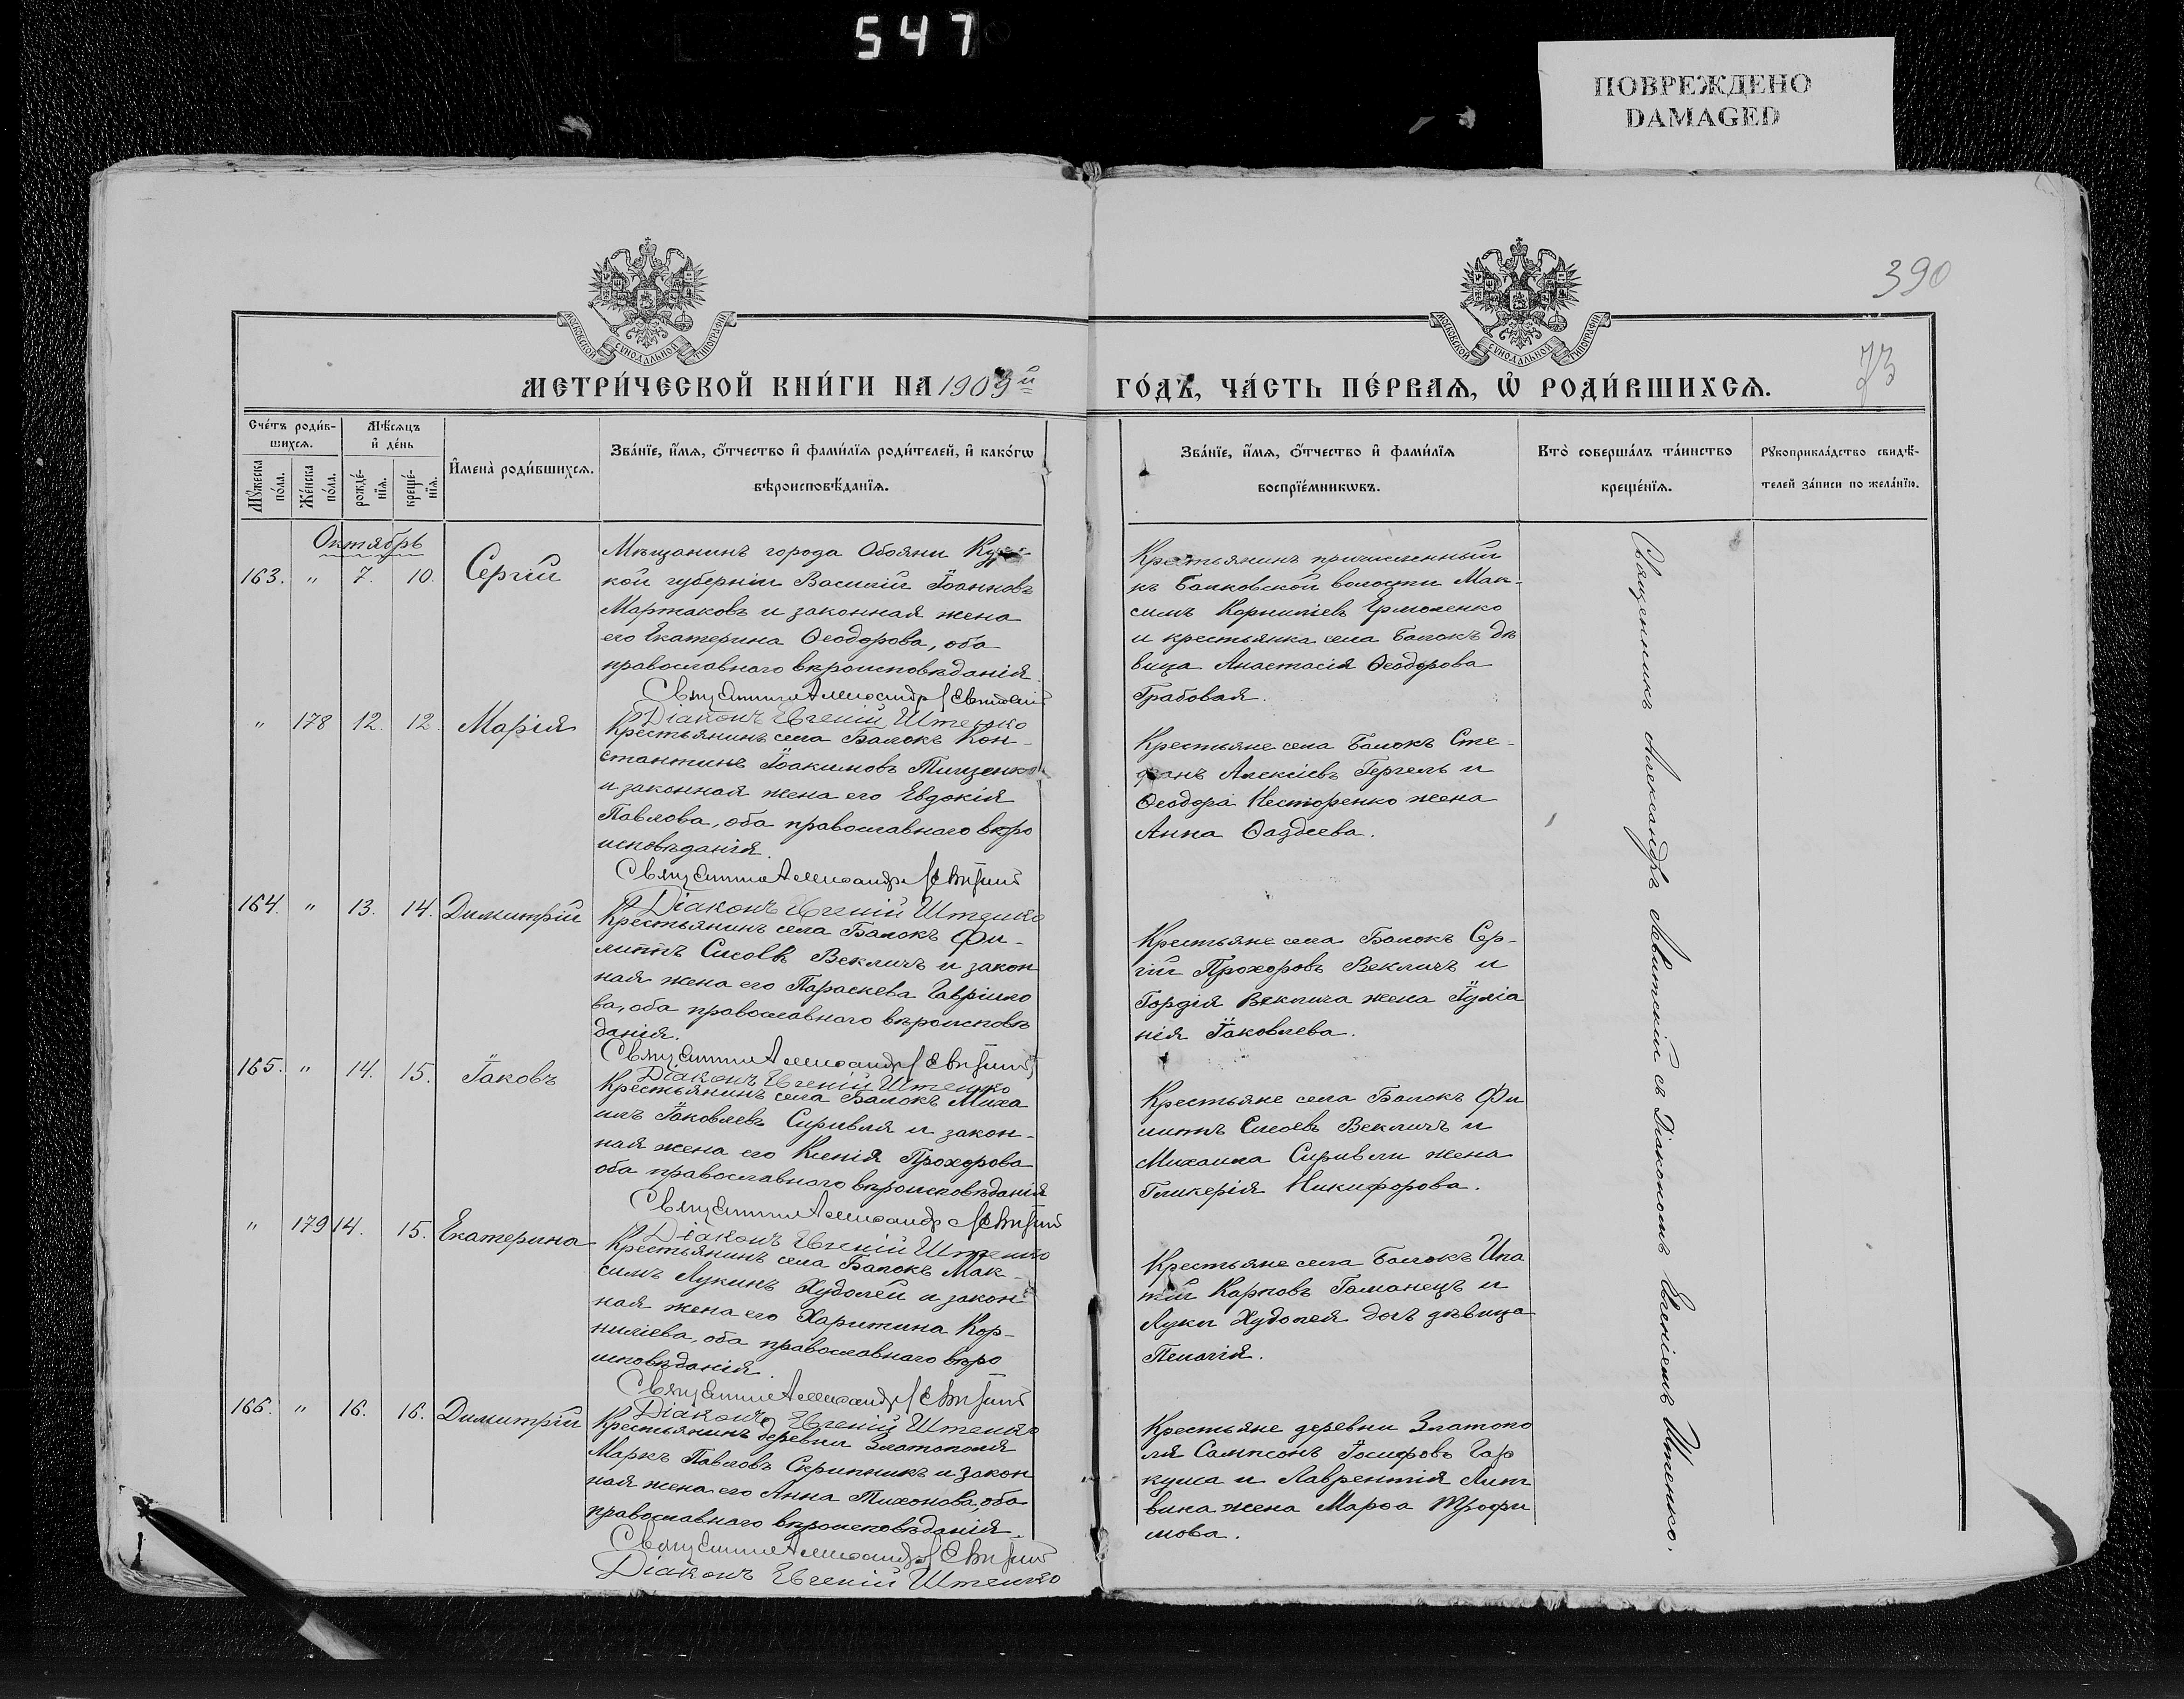 547
ПОВРЕЖДЕНО
DAMAGED
390
73
МОСКОВСКОЙ СУНОДАЛЬНОЙ ТИПОГРАФІИ
МОСКОВСКОЙ СУНОДАЛЬНОЙ ТИПОГРАФІИ
МЕТРИ́ЧЕСКОЙ КНИ́ГИ НА 1909й ГО́ДЪ, ЧА́СТЬ ПЕ́РВАѦ, Ѡ҆ РОДИ́ВШИХСѦ.
Сче́тъ роди́в-
шихсѧ.
Мѣ́сѧцъ
и҆ де́нь
Мꙋ́жеска
по́ла.
Же́нска
по́ла.
рожде́-
нїѧ.
креще́-
нїѧ.
И҆мена̀ роди́вшихсѧ.
Зва́нїе, и҆́мѧ, ѻ҆́тчество и҆ фами́лїѧ роди́телей, и҆ како́гѡ
вѣроисповѣ́данїѧ.
Зва́нїе, и҆́мѧ, ѻ҆́тчество и҆ фами́лїѧ
воспрїе́мникѡвъ.
Кто̀ соверша́лъ та́инство
креще́нїѧ.
Рꙋкоприкла́дство свидѣ́-
телей за́писи по жела́нїю.
Октябрь
163. " 7. 10. Сергій
Мѣщанинъ города Обояни Курс-
кой губерніи Василій Іоанновъ
Мартаковъ и законная жена
его Екатерина Ѳеодорова, оба
православнаго вѣроисповѣданія.
Священникъ Александръ Левитскій
Діаконъ Евгеній Штепко
Крестьянинъ причисленный
къ Балковской волости Мак-
симъ Корниліевъ Ермоленко
и крестьянка села Балокъ дѣ
вица Анастасія Ѳеодорова
Грабовая.
" 178 12. 12. Марія
Крестьянинъ села Балокъ Кон-
стантинъ Іоакимовъ Тищенко
и законная жена его Евдокія
Павлова, оба православнаго вѣро
исповѣданія.
Священникъ Александръ Левитскій
Діаконъ Евгеній Штепко
Крестьяне села Балокъ Сте-
фанъ Алексіевъ Гергель и
Ѳеодора Несторенко жена
Анна Ѳаддеева.
164. " 13. 14. Димитрій
Крестьянинъ села Балокъ Фи-
липпъ Сисоевъ Векличъ и закон
ная жена его Параскева Гавріило
ва, оба православнаго вѣроисповѣ
данія.
Священникъ Александръ Левитскій
Діаконъ Евгеній Штепко
Крестьяне села Балокъ Сер-
гій Прохоровъ Векличъ и
Гордія Веклича жена Іуліа
нія Іаковлева.
165. " 14. 15. Іаковъ
Крестьянинъ села Балокъ Миха
илъ Іаковлевъ Сиривля и закон-
ная жена его Ксенія Прохорова
оба православнаго вѣроисповѣданія
Священникъ Александръ Левитскій
Діаконъ Евгеній Штепко
Крестьяне села Балокъ Фи
липпъ Сисоевъ Векличъ и
Михаила Сиривли жена
Гликерія Никифорова.
" 179 14. 15. Екатерина
Крестьянинъ села Балокъ Мак-
симъ Лукинъ Худолей и закон-
ная жена его Харитина Кор-
ниліева, оба православнаго вѣро
исповѣданія.
Священникъ Александръ Левитскій
Діаконъ Евгеній Штепко
Крестьяне села Балокъ Ипа
тій Карповъ Гаманецъ и
Луки Худолея дочь дѣвица
Пелагія.
166. " 16. 16. Димитрій
Крестьянинъ деревни Златополя
Маркъ Павловъ Скрипникъ и закон
ная жена его Анна Тихонова, оба
православнаго вѣроисповѣданія.
Священникъ Александръ Левитскій
Діаконъ Евгеній Штепко
Крестьяне деревни Златопо
ля Сампсонъ Іосифовъ Гар
куша и Лаврентія Лит
вина жена Марѳа Трофи
мова.
Священникъ Александръ Левитскій съ Діакономъ Евгеніемъ Штепко.